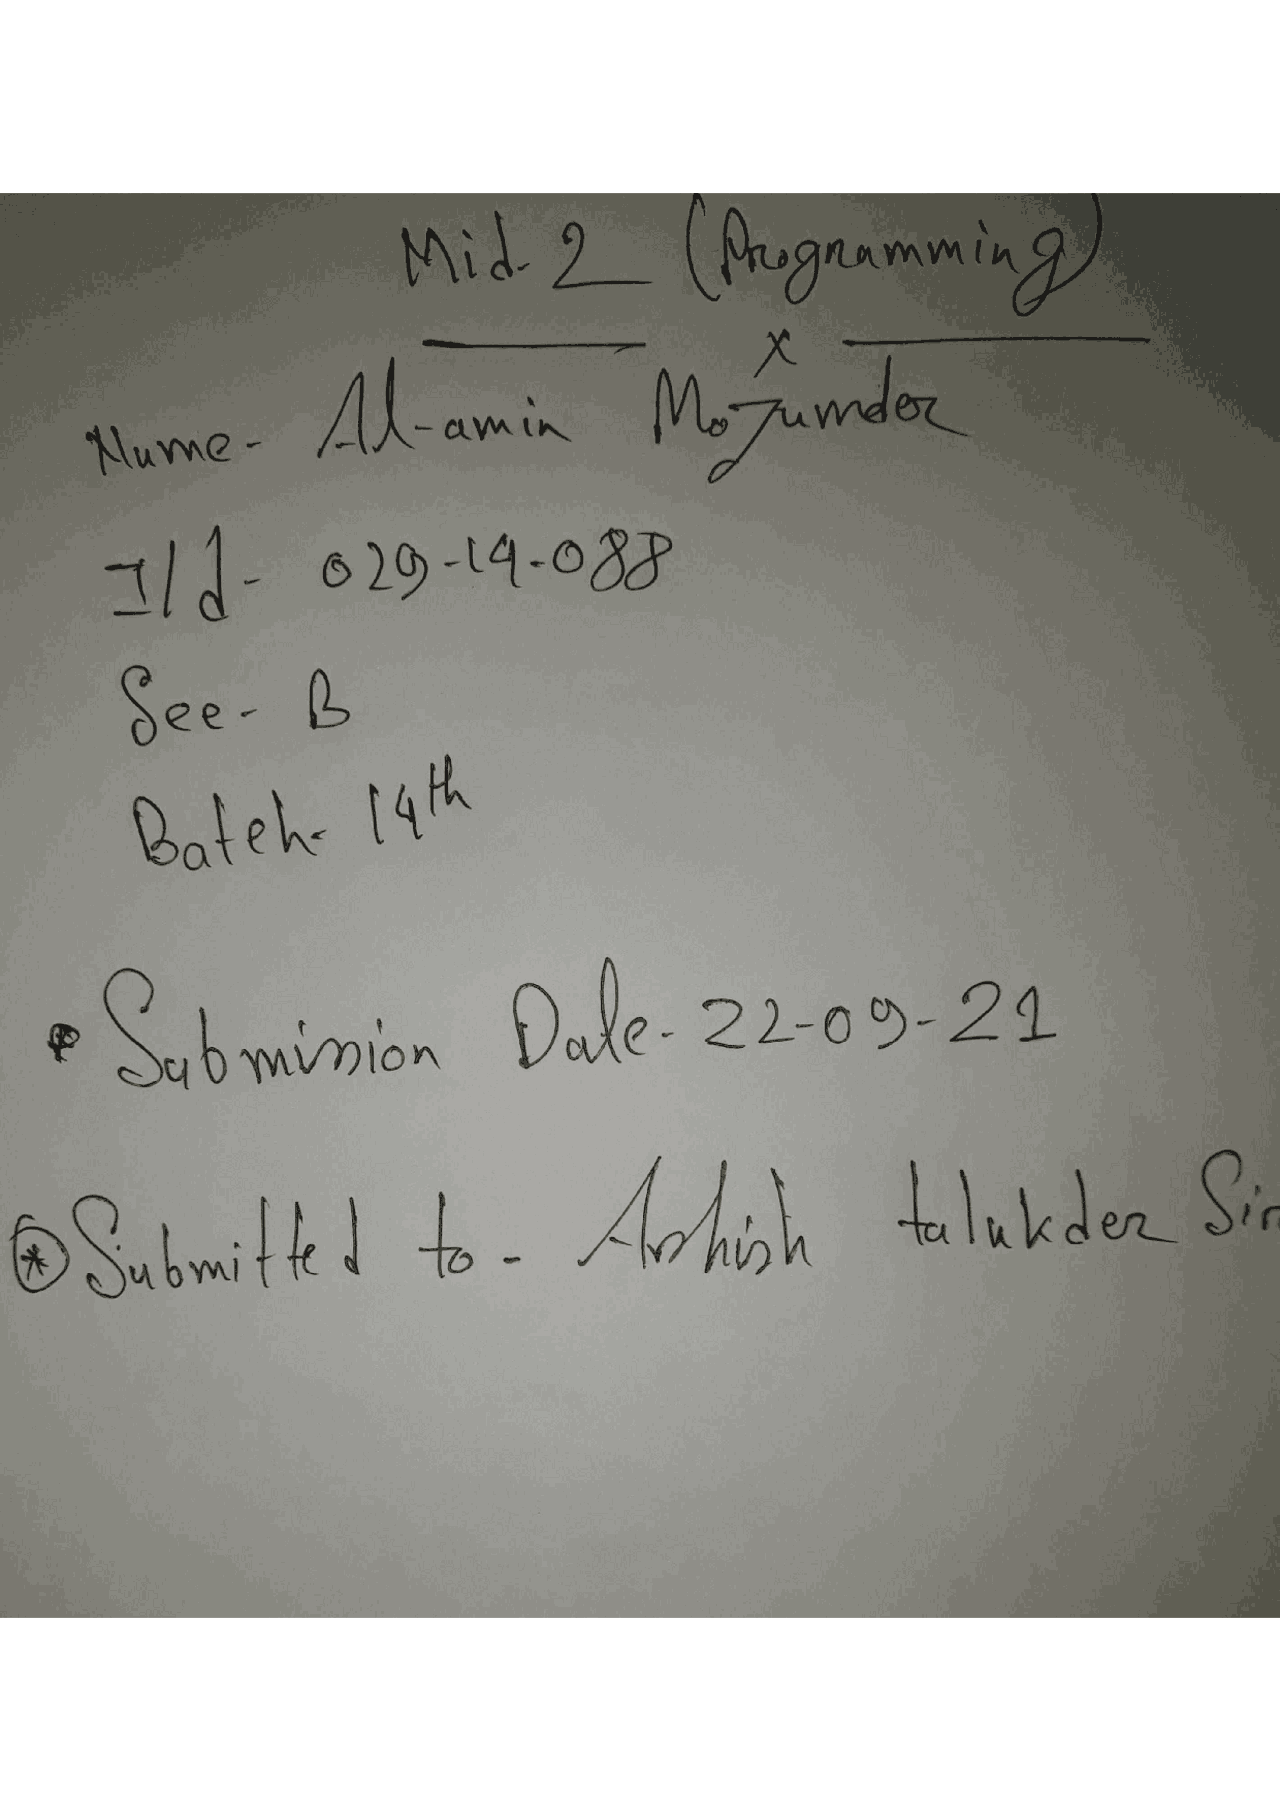 Mid-2 (Programming)
x
Name- Al-amin Mojumder
I/d- 029-14-088
Sec- B
Batch- 14th
• Submission Date- 22-09-21
* Submitted to- Ashish talukder Sir